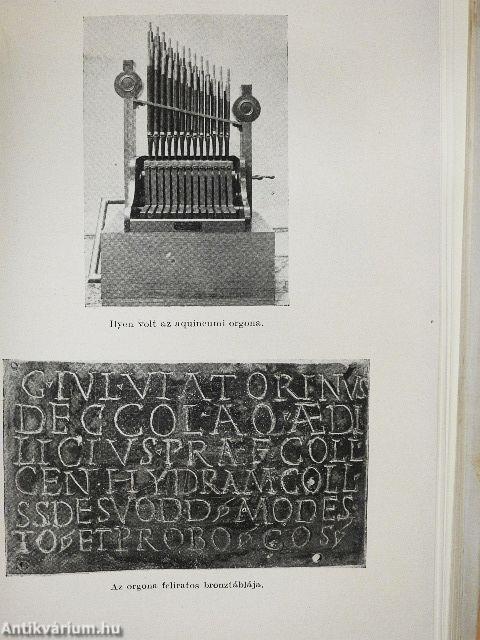 Ilyen volt az aquincumi orgona.
G·IVL·VIATORINVS
DEC COL·AQ·ÆDI
LICIVS·PRAEF COLL·
CENT HYDRAM COLL·
S S DE SVO D D MODES
TO ET PROBO COS
Az orgona feliratos bronztáblája.
Antikvárium.hu